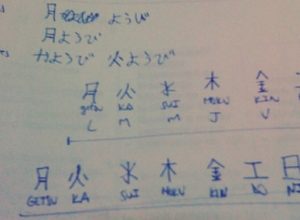 月 ようび
月ようび
かようび 火ようび
月 火 水 木 金
GETSU KA SUI MOKU KIN
L M M J V
月 火 水 木 金 工 日
GETSU KA SUI MOKU KIN KO NI